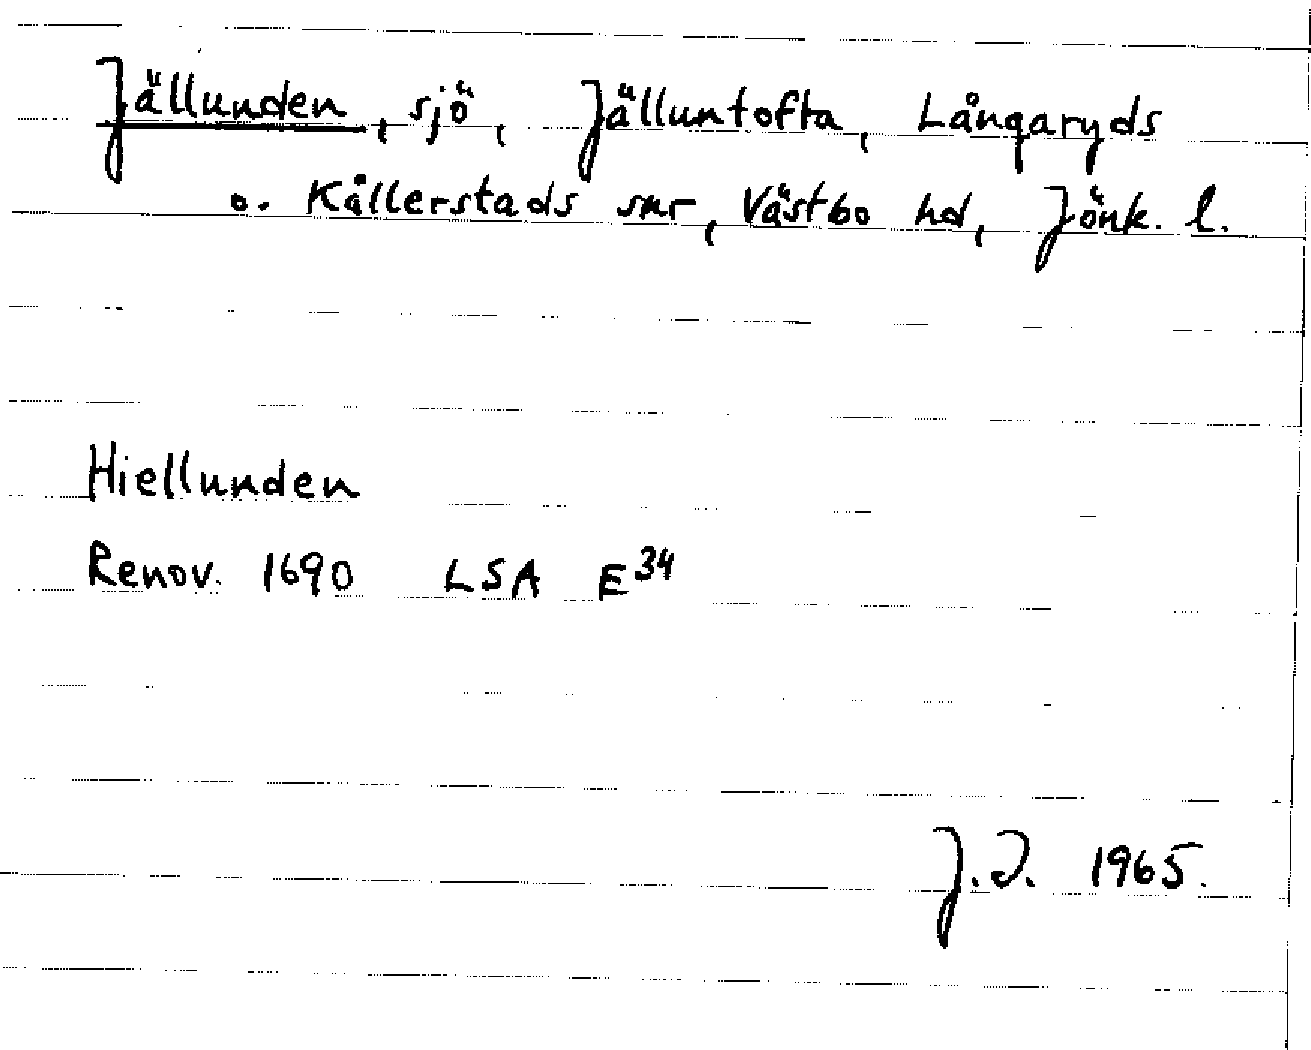 Jällunden, sjö, Jälluntofta, Långaryds
o. Kållerstads snr, Västbo hd, Jönk. l.
Hiellunden
Renov. 1690 LSA E34
J.I. 1965.